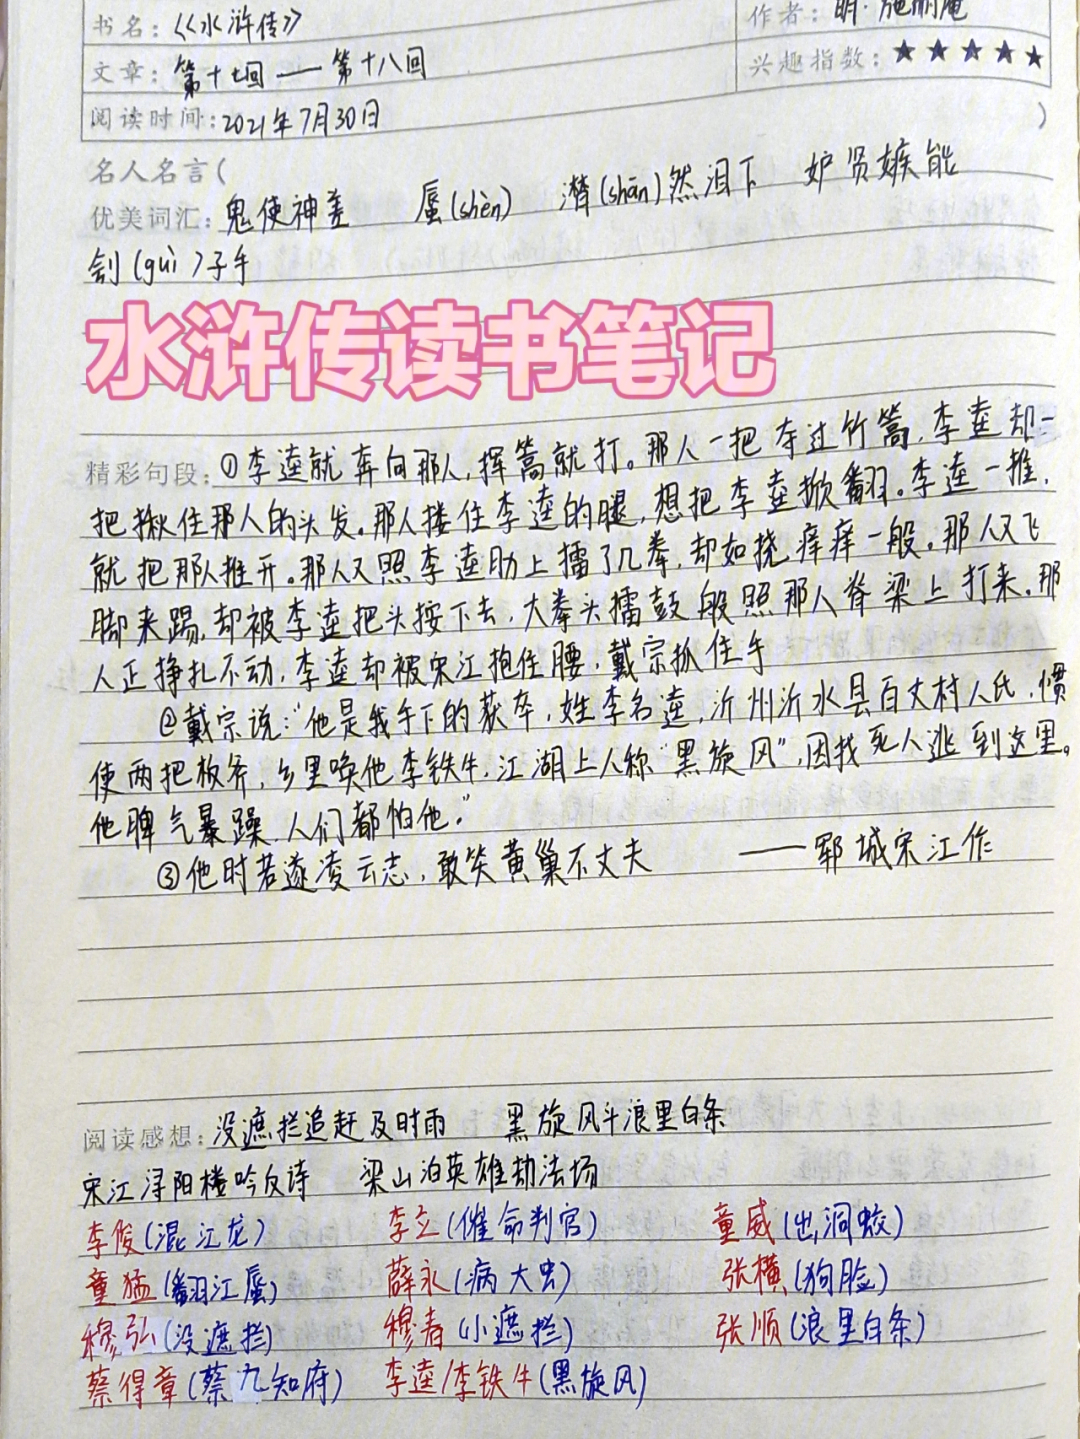 书名：《水浒传》
作者：明·施耐庵
文章：第十七回——第十八回
兴趣指数：★★★★★
阅读时间：2021年7月30日
名人名言( )
优美词汇：鬼使神差 蜃(shèn) 潸(shān)然泪下 妒贤嫉能
刽(guì)子手
水浒传读书笔记
精彩句段：①李逵就奔向那人，挥篙就打。那人一把夺过竹篙，李逵却一
把揪住那人的头发。那人搂住李逵的腿，想把李逵掀翻。李逵一推，
就把那人推开。那人又照李逵肋上擂了几拳，却如挠痒痒一般。那人又飞
脚来踢，却被李逵把头按下去，大拳头擂鼓般照那人脊梁上打来。那
人正挣扎不动，李逵却被宋江抱住腰，戴宗抓住手
②戴宗说："他是我手下的狱卒，姓李名逵，沂州沂水县百丈村人氏，惯
使两把板斧，乡里唤他李铁牛，江湖上人称"黑旋风"，因找死人逃到这里。
他脾气暴躁，人们都怕他。"
③他时若遂凌云志，敢笑黄巢不丈夫 ——郓城宋江作
阅读感想：没遮拦追赶及时雨 黑旋风斗浪里白条
宋江浔阳楼吟反诗 梁山泊英雄劫法场
李俊(混江龙) 李立(催命判官) 童威(出洞蛟)
童猛(翻江蜃) 薛永(病大虫) 张横(狗脸)
穆弘(没遮拦) 穆春(小遮拦) 张顺(浪里白条)
蔡得章(蔡九知府) 李逵/李铁牛(黑旋风)